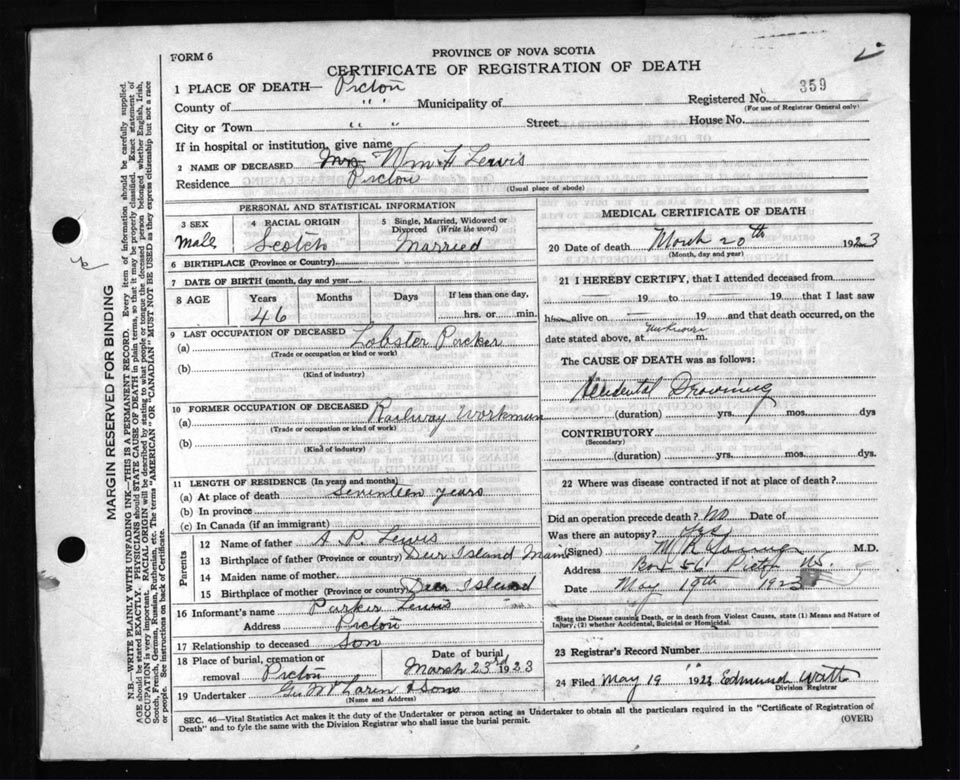 FORM 6
PROVINCE OF NOVA SCOTIA
CERTIFICATE OF REGISTRATION OF DEATH
1 PLACE OF DEATH— Pictou
Registered No. 359
(For use of Registrar General only)
County of " " Municipality of
City or Town " " Street House No.
If in hospital or institution, give name
2 NAME OF DECEASED Wm H Lewis
Residence Pictou
(Usual place of abode)
PERSONAL AND STATISTICAL INFORMATION
3 SEX Male
4 RACIAL ORIGIN Scotch
5 Single, Married, Widowed or Divorced (Write the word) Married
6 BIRTHPLACE (Province or Country)
7 DATE OF BIRTH (month, day and year)
8 AGE Years 46 Months Days If less than one day, hrs. or min.
9 LAST OCCUPATION OF DECEASED
(a) Lobster Packer
(Trade or occupation or kind or work)
(b)
(Kind of industry)
10 FORMER OCCUPATION OF DECEASED
(a) Railway Workman
(Trade or occupation or kind of work)
(b)
(Kind of industry)
11 LENGTH OF RESIDENCE (In years and months)
(a) At place of death Seventeen years
(b) In province
(c) In Canada (if an immigrant)
Parents
12 Name of father A. P. Lewis
13 Birthplace of father (Province or country) Deer Island Maine
14 Maiden name of mother
15 Birthplace of mother (Province or country) Deer Island
16 Informant's name Parker Lewis
Address Pictou
17 Relationship to deceased Son
18 Place of burial, cremation or removal Pictou
Date of burial March 23rd 1923
19 Undertaker & Sons
(Name and Address)
MEDICAL CERTIFICATE OF DEATH
20 Date of death March 20th 1923
(Month, day and year)
21 I HEREBY CERTIFY, that I attended deceased from
— 19 to — 19 that I last saw
h alive on — 19 and that death occurred, on the
date stated above, at unknown m.
The CAUSE OF DEATH was as follows:
Accidental Drowning
(duration) yrs. mos. dys
CONTRIBUTORY
(Secondary)
(duration) yrs. mos. dys
22 Where was disease contracted if not at place of death?
Did an operation precede death? No Date of
Was there an autopsy? Yes
(Signed) M R Young M.D.
Address Box 56 Pictou N.S.
Date May 19th 1923
State the Disease causing Death, or in death from Violent Causes, state (1) Means and Nature of Injury, (2) whether Accidental, Suicidal or Homicidal.
23 Registrar's Record Number
24 Filed May 19 " 1923 Edmund
Division Registrar
SEC. 46—Vital Statistics Act makes it the duty of the Undertaker or person acting as Undertaker to obtain all the particulars required in the "Certificate of Registration of
Death" and to fyle the same with the Division Registrar who shall issue the burial permit.
(OVER)
MARGIN RESERVED FOR BINDING
N.B.—WRITE PLAINLY WITH UNFADING INK—THIS IS A PERMANENT RECORD. Every item of information should be carefully supplied.
AGE should be stated EXACTLY. PHYSICIANS should STATE CAUSE OF DEATH in plain terms, so that it may be properly classified. Exact statement of
OCCUPATION is very important. RACIAL ORIGIN will be described by stating to what people or tongue the deceased person belonged whether English, Irish,
Scotch, French, German, Russian, Ruthenian, etc. The terms "AMERICAN" or "CANADIAN" MUST NOT BE USED as they express citizenship but not a race
or people. See instructions on back of Certificate.